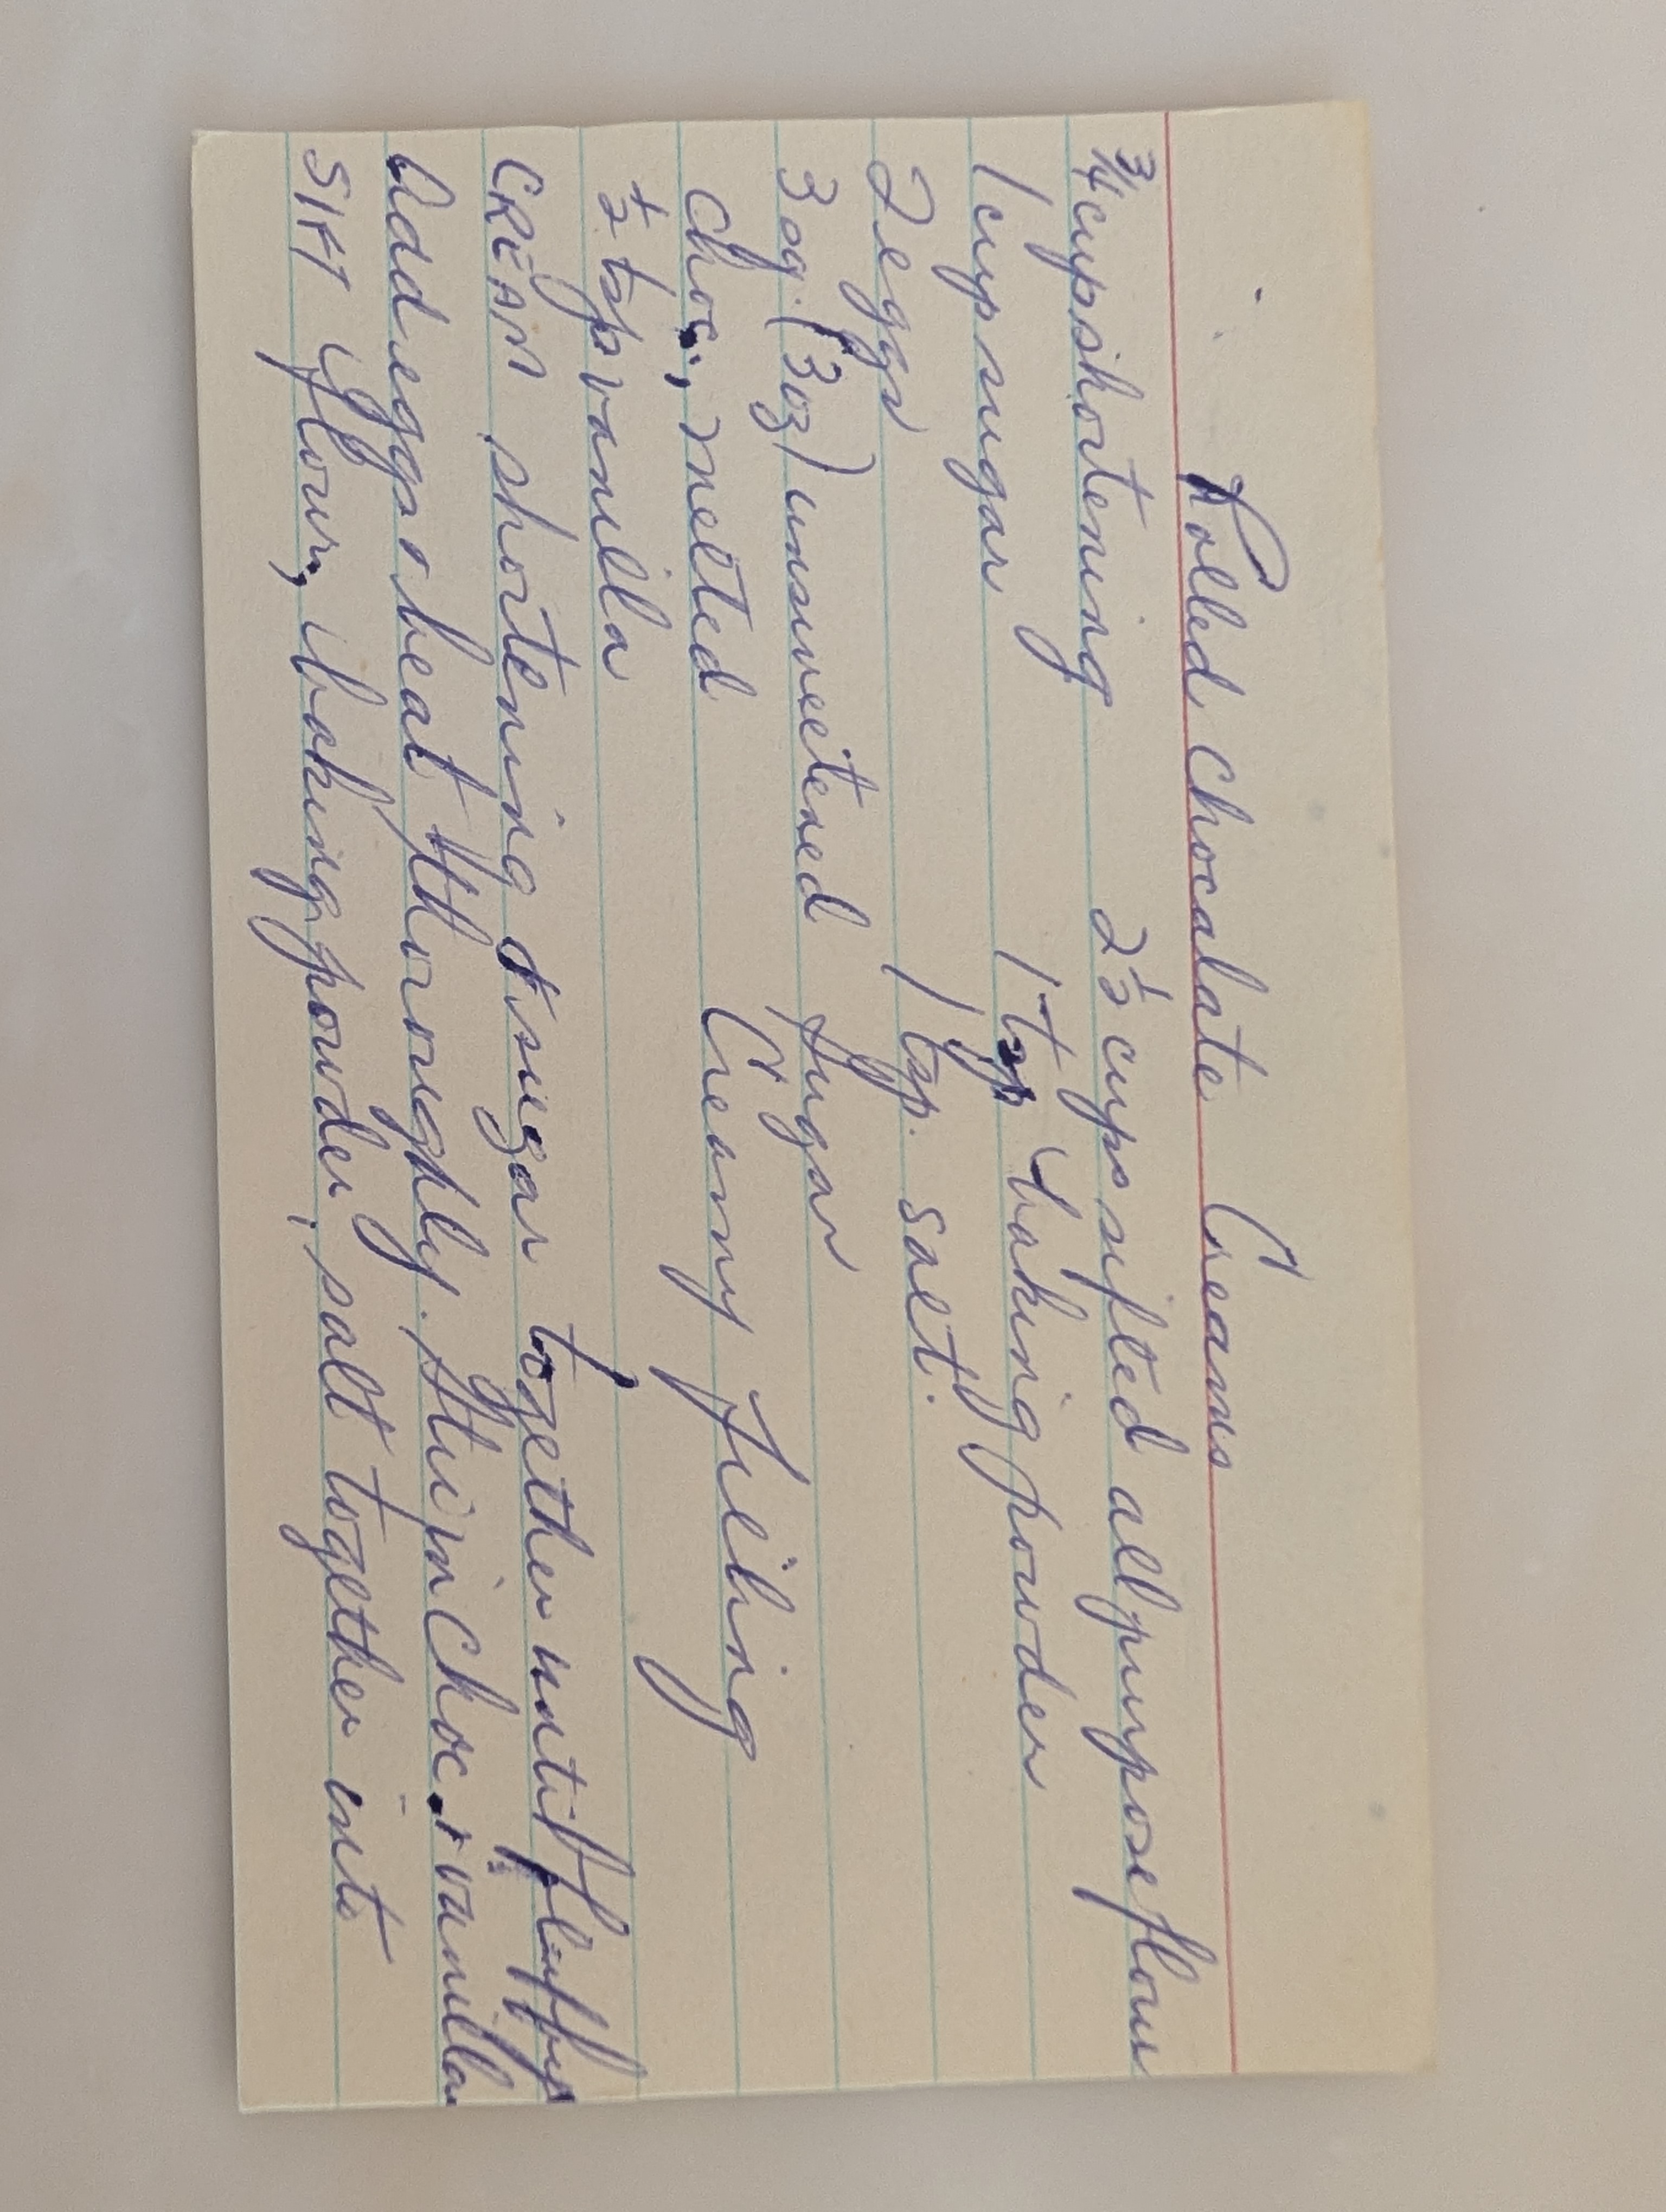 Rolled Chocolate Creams
3/4 cup shortening 2 1/2 cups sifted all purpose flour
1 cup sugar 1 tsp baking powder
2 eggs 1 tsp. salt.
3 sq. (3 oz) unsweetened Sugar
choc., melted Creamy Filling
1/2 tsp vanilla
CREAM shortening & sugar together until fluffy
Add eggs & beat thoroughly. Stir in choc. & vanilla
SIFT flour, baking powder, salt together into